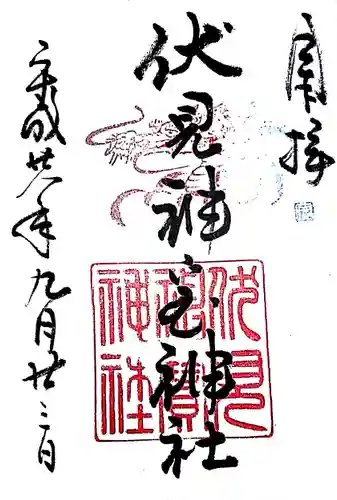 奉拝
伏見神宝神社
平成廿八年九月廿三日
伏見
神寶
神社